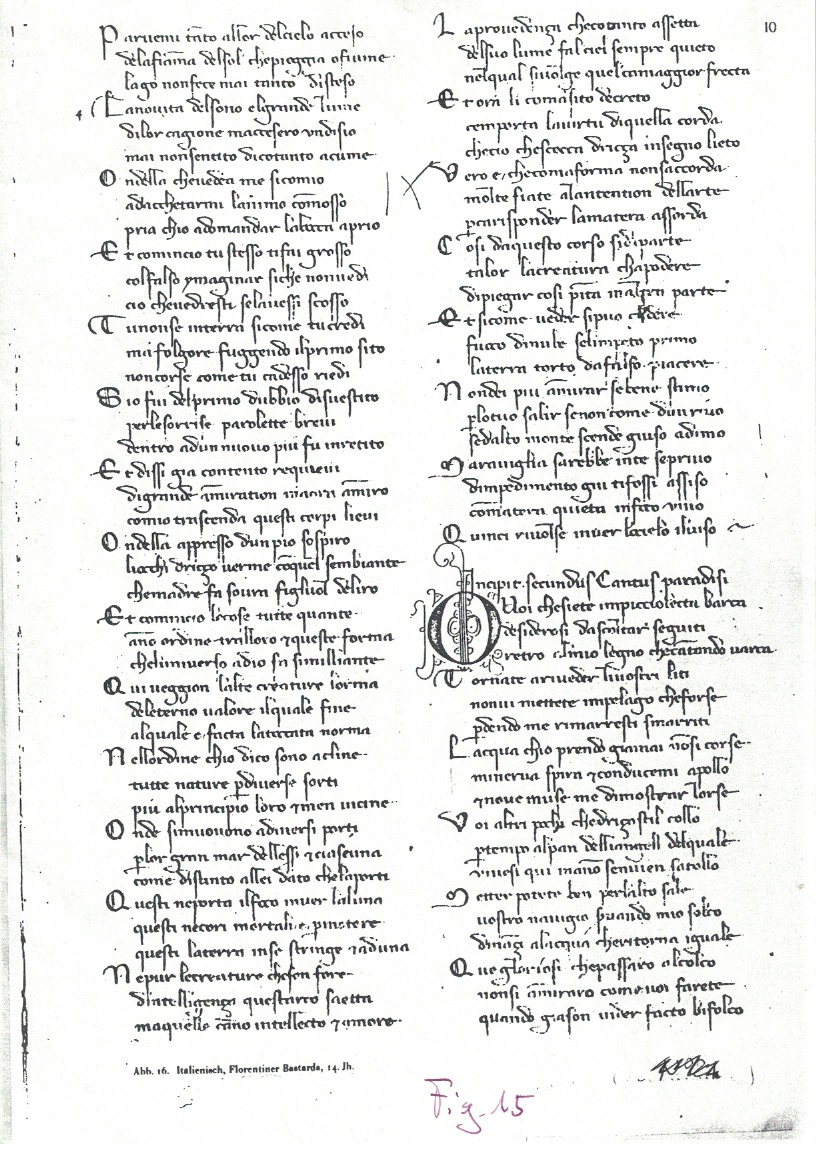 10
Parvemi tãto allor delcielo acceso
delafiãma delsol chepioggia ofiume
lago nonfece mai tanto disteso
Lanovita delsono elgrande lume
dilor cagione maccesero vndisio
mai nonsentito dicotanto acume
Ondella chevedea me sicomio
adacchetarmi lanimo cõmosso
pria chio adomandar labocca aprio
Et comincio tu stesso tifai grosso
colfalso ymaginar siche nonvedi
cio chevedresti selavessi scosso
Tu nonse interra sicome tucredi
ma folgore fuggendo ilprimo sito
noncorse come tu cadesso riedi
Sio fui delprimo dubbio disvestito
perlesorrise parolette brevi
dentro adun nuovo piu fu inretito
Et dissi gia contento requievi
digrande ãmiration maora ãmiro
comio trascenda questi corpi lievi
Ondella appresso dun pio sospiro
liocchi drizço verme cõquel sembiante
chemadre fa sovra figliuol deliro
Et comincio lecose tutte quante
ãno ordine trálloro ⁊queste forma
cheluniverso adio fa simigliante
Qui veggion lalte creature lorma
deleterno valore ilquale fine
alquale e facta latoccata norma
Nellordine chio dico sono acline
tutte nature p̱diverse sorti
piu alprincipio loro ⁊men vicine
Onde simuovono adiversi porti
p̱lor gran mar dellessi ⁊ciascuna
come distinto allei dato chelaporti
Questi neporta ilfoco inver laluna
questi necori mortali e pmotere
questi laterra inse stringe ⁊aduna
Nepur lecreature chesen fore
dintelligença questarco saetta
maquelle cãno intellecto ⁊amore
Laprovedença checotanto assetta
delsuo lume fal ciel sempre quieto
nelqual sivolge quel camaggior frecta
Et ora li comasito decreto
cemporta lavirtu diquella corda
checio chescocca driçça insegno lieto
Vero e checomaforma nonsaccorda
molte fiate alantention dellarte
p̱carisponder lamatera assorda
Cosi daquesto corso sidiparte
talor lacreatura chapodere
dipiegar cosi pĩta inaltra parte
Et sicome veder sipuo cadere
fuoco dinube selimpeto primo
laterra torto dafalso piacere
Nondei piu ãmirar sebene stimo
p̱lotuo salir senon come dunrivo
sedalto monte scende giuso adimo
Maraviglia sarebbe inte seprivo
dimpedimento giu tifossi assiso
comatera quieta infoco vivo
Quinci rivolse inver locielo ilviso
Incipit secundus Cantus paradisi
O Uoi chesiete impiccioletta barca
desiderosi dascoltar seguiti
retro almio legno checantando varca
Tornate ariveder livostri liti
nonvi mettete impelago cheforse
p̱dendo me rimarresti smarriti
Lacqua chio prendo giamai nõsi corse
minerva spira ⁊conducemi apollo
⁊nove muse me dimostrar lorse
Voi altri pochi chedriçastil collo
p̱tempo alpan delliangeli delquale
vivesi qui manõ senvien satollo
Metter potete ben perlalto sale
vostro navigio servando mio solco
dinançi alacqua cheritorna iguale
Que gloriosi chepassaro alcolco
nonsi ãmiraro come voi farete
quando giason vider facto bifolco
Abb. 16. Italienisch, Florentiner Bastarda, 14. Jh.
Fig. 15